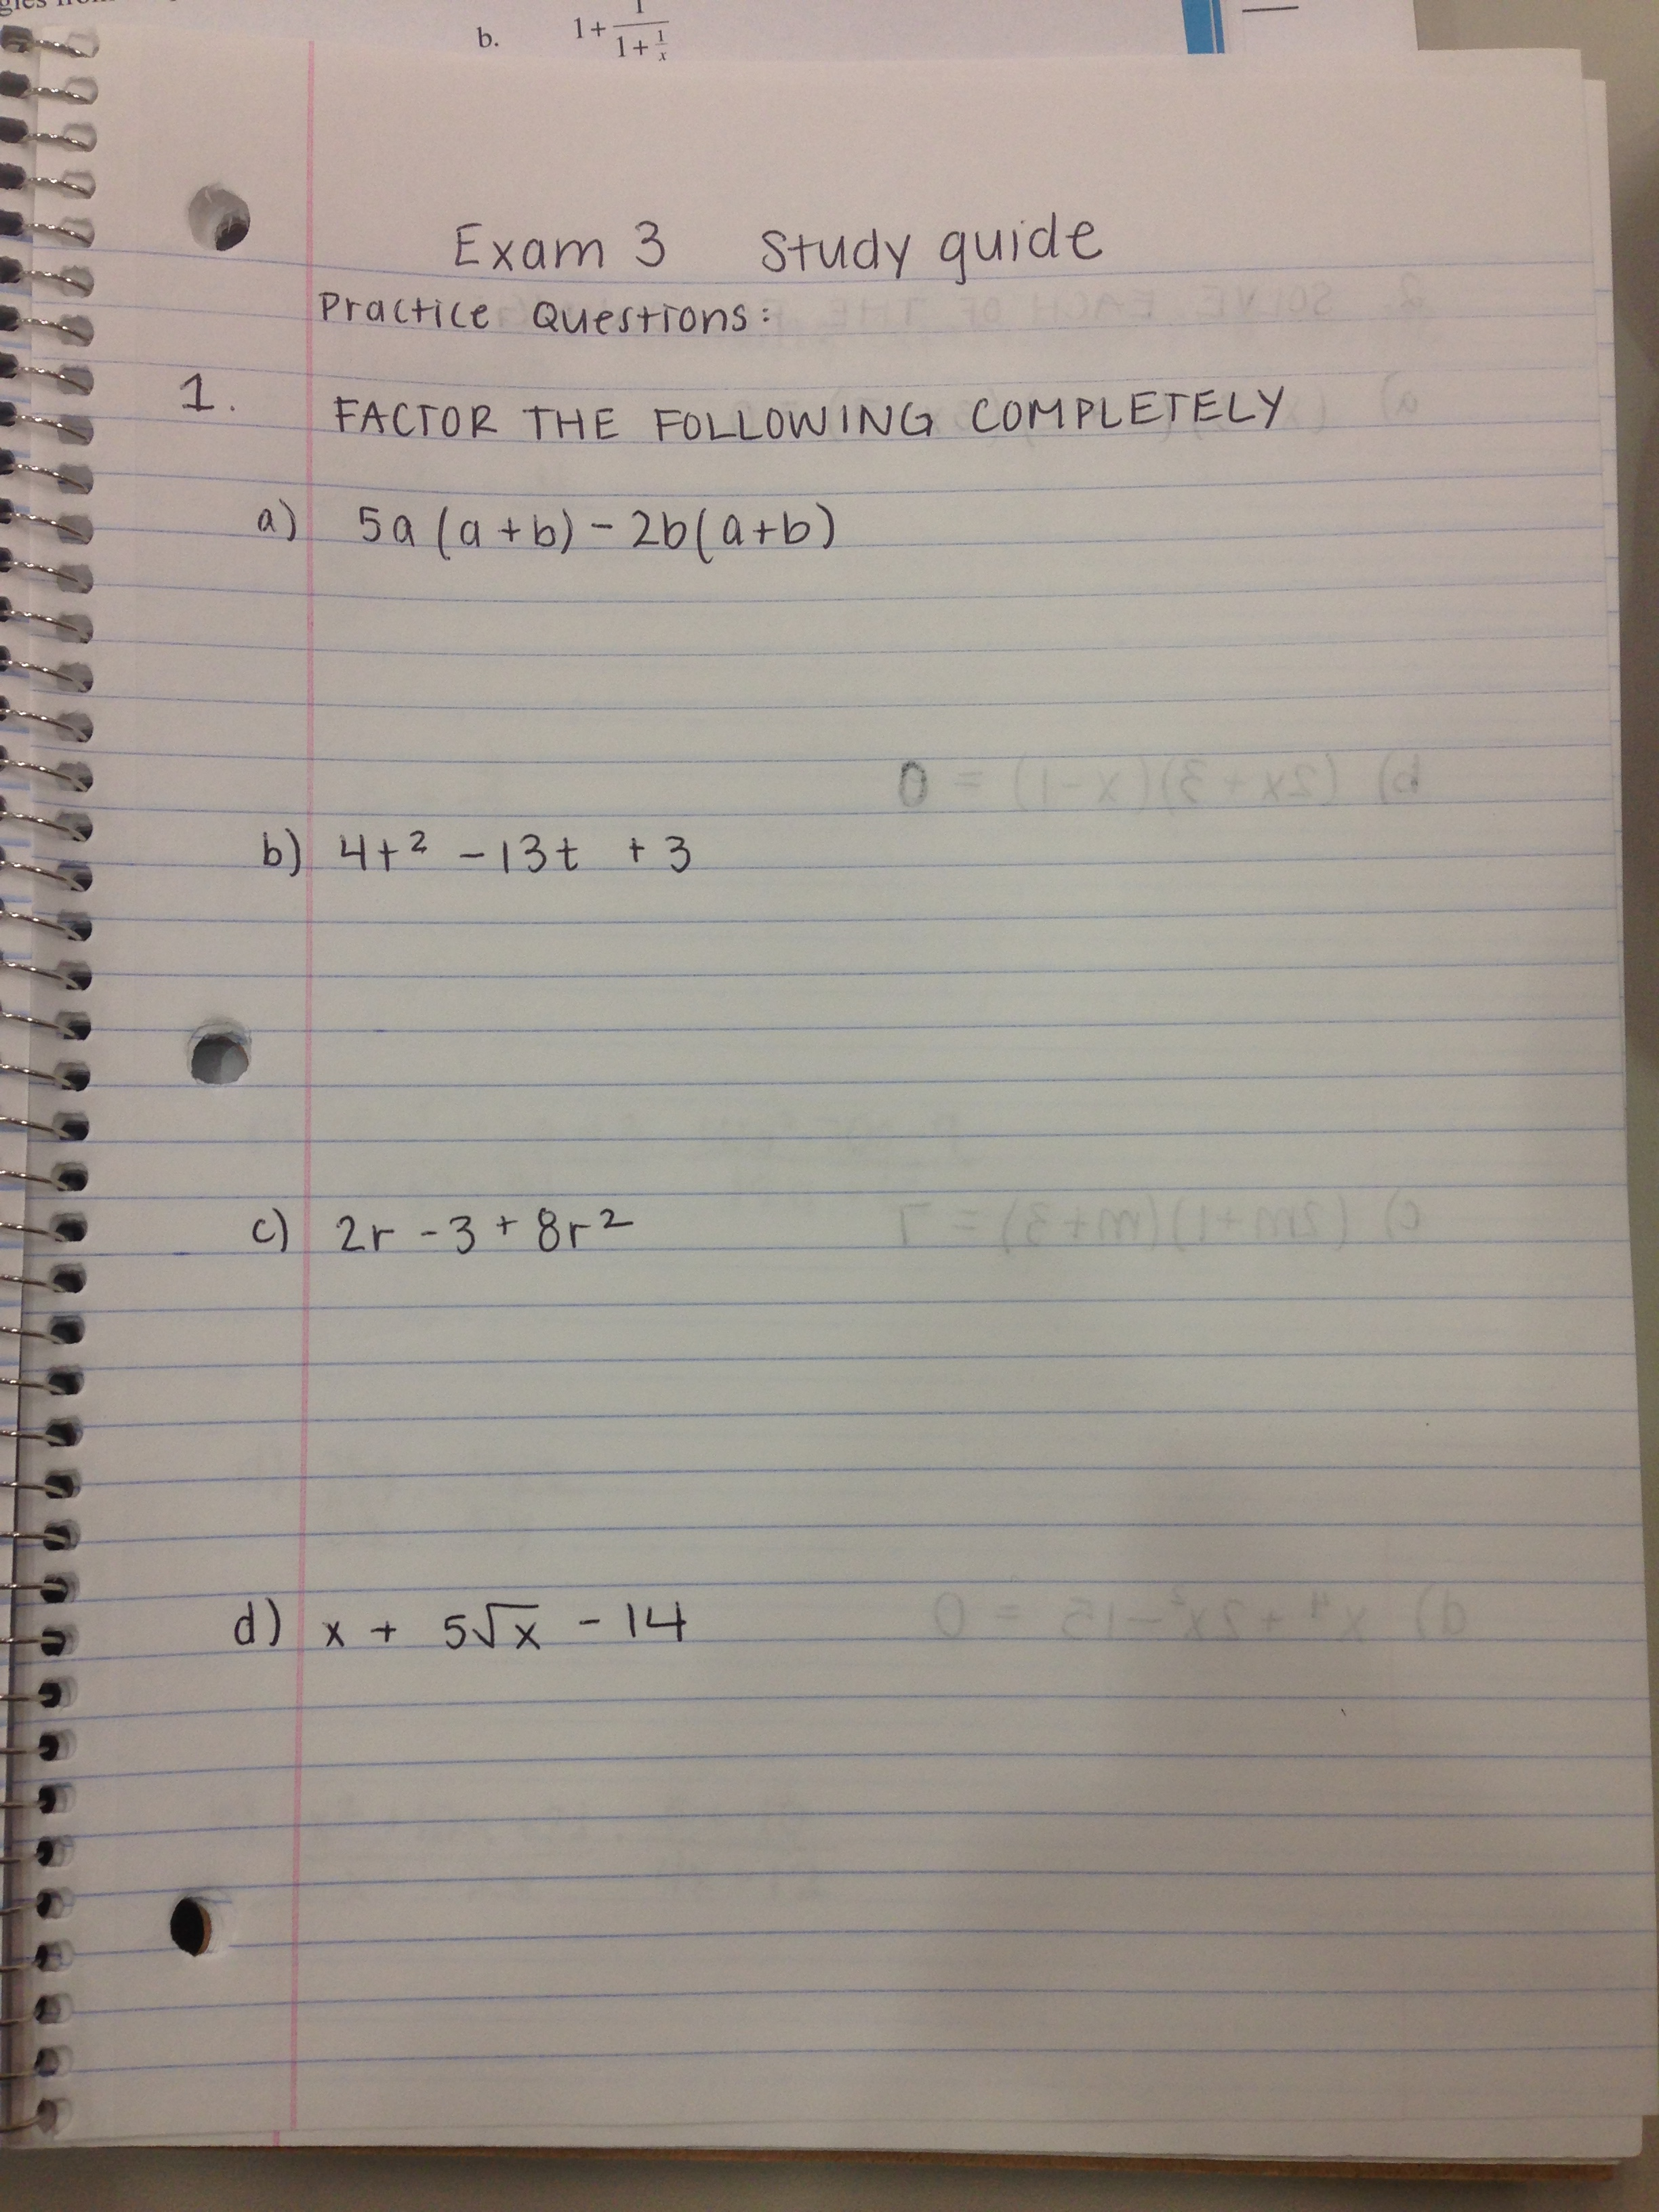 b. 1+ 1 / 1+ 1/x
Exam 3 Study guide
Practice Questions:
1. FACTOR THE FOLLOWING COMPLETELY
a) 5a (a+b) - 2b(a+b)
b) 4t² - 13t + 3
b) (2x+3)(x-1) = 0
c) 2r - 3 + 8r²
c) (2m+1)(m+3) = 7
d) x + 5√x - 14
d) x⁴ + 2x² - 15 = 0